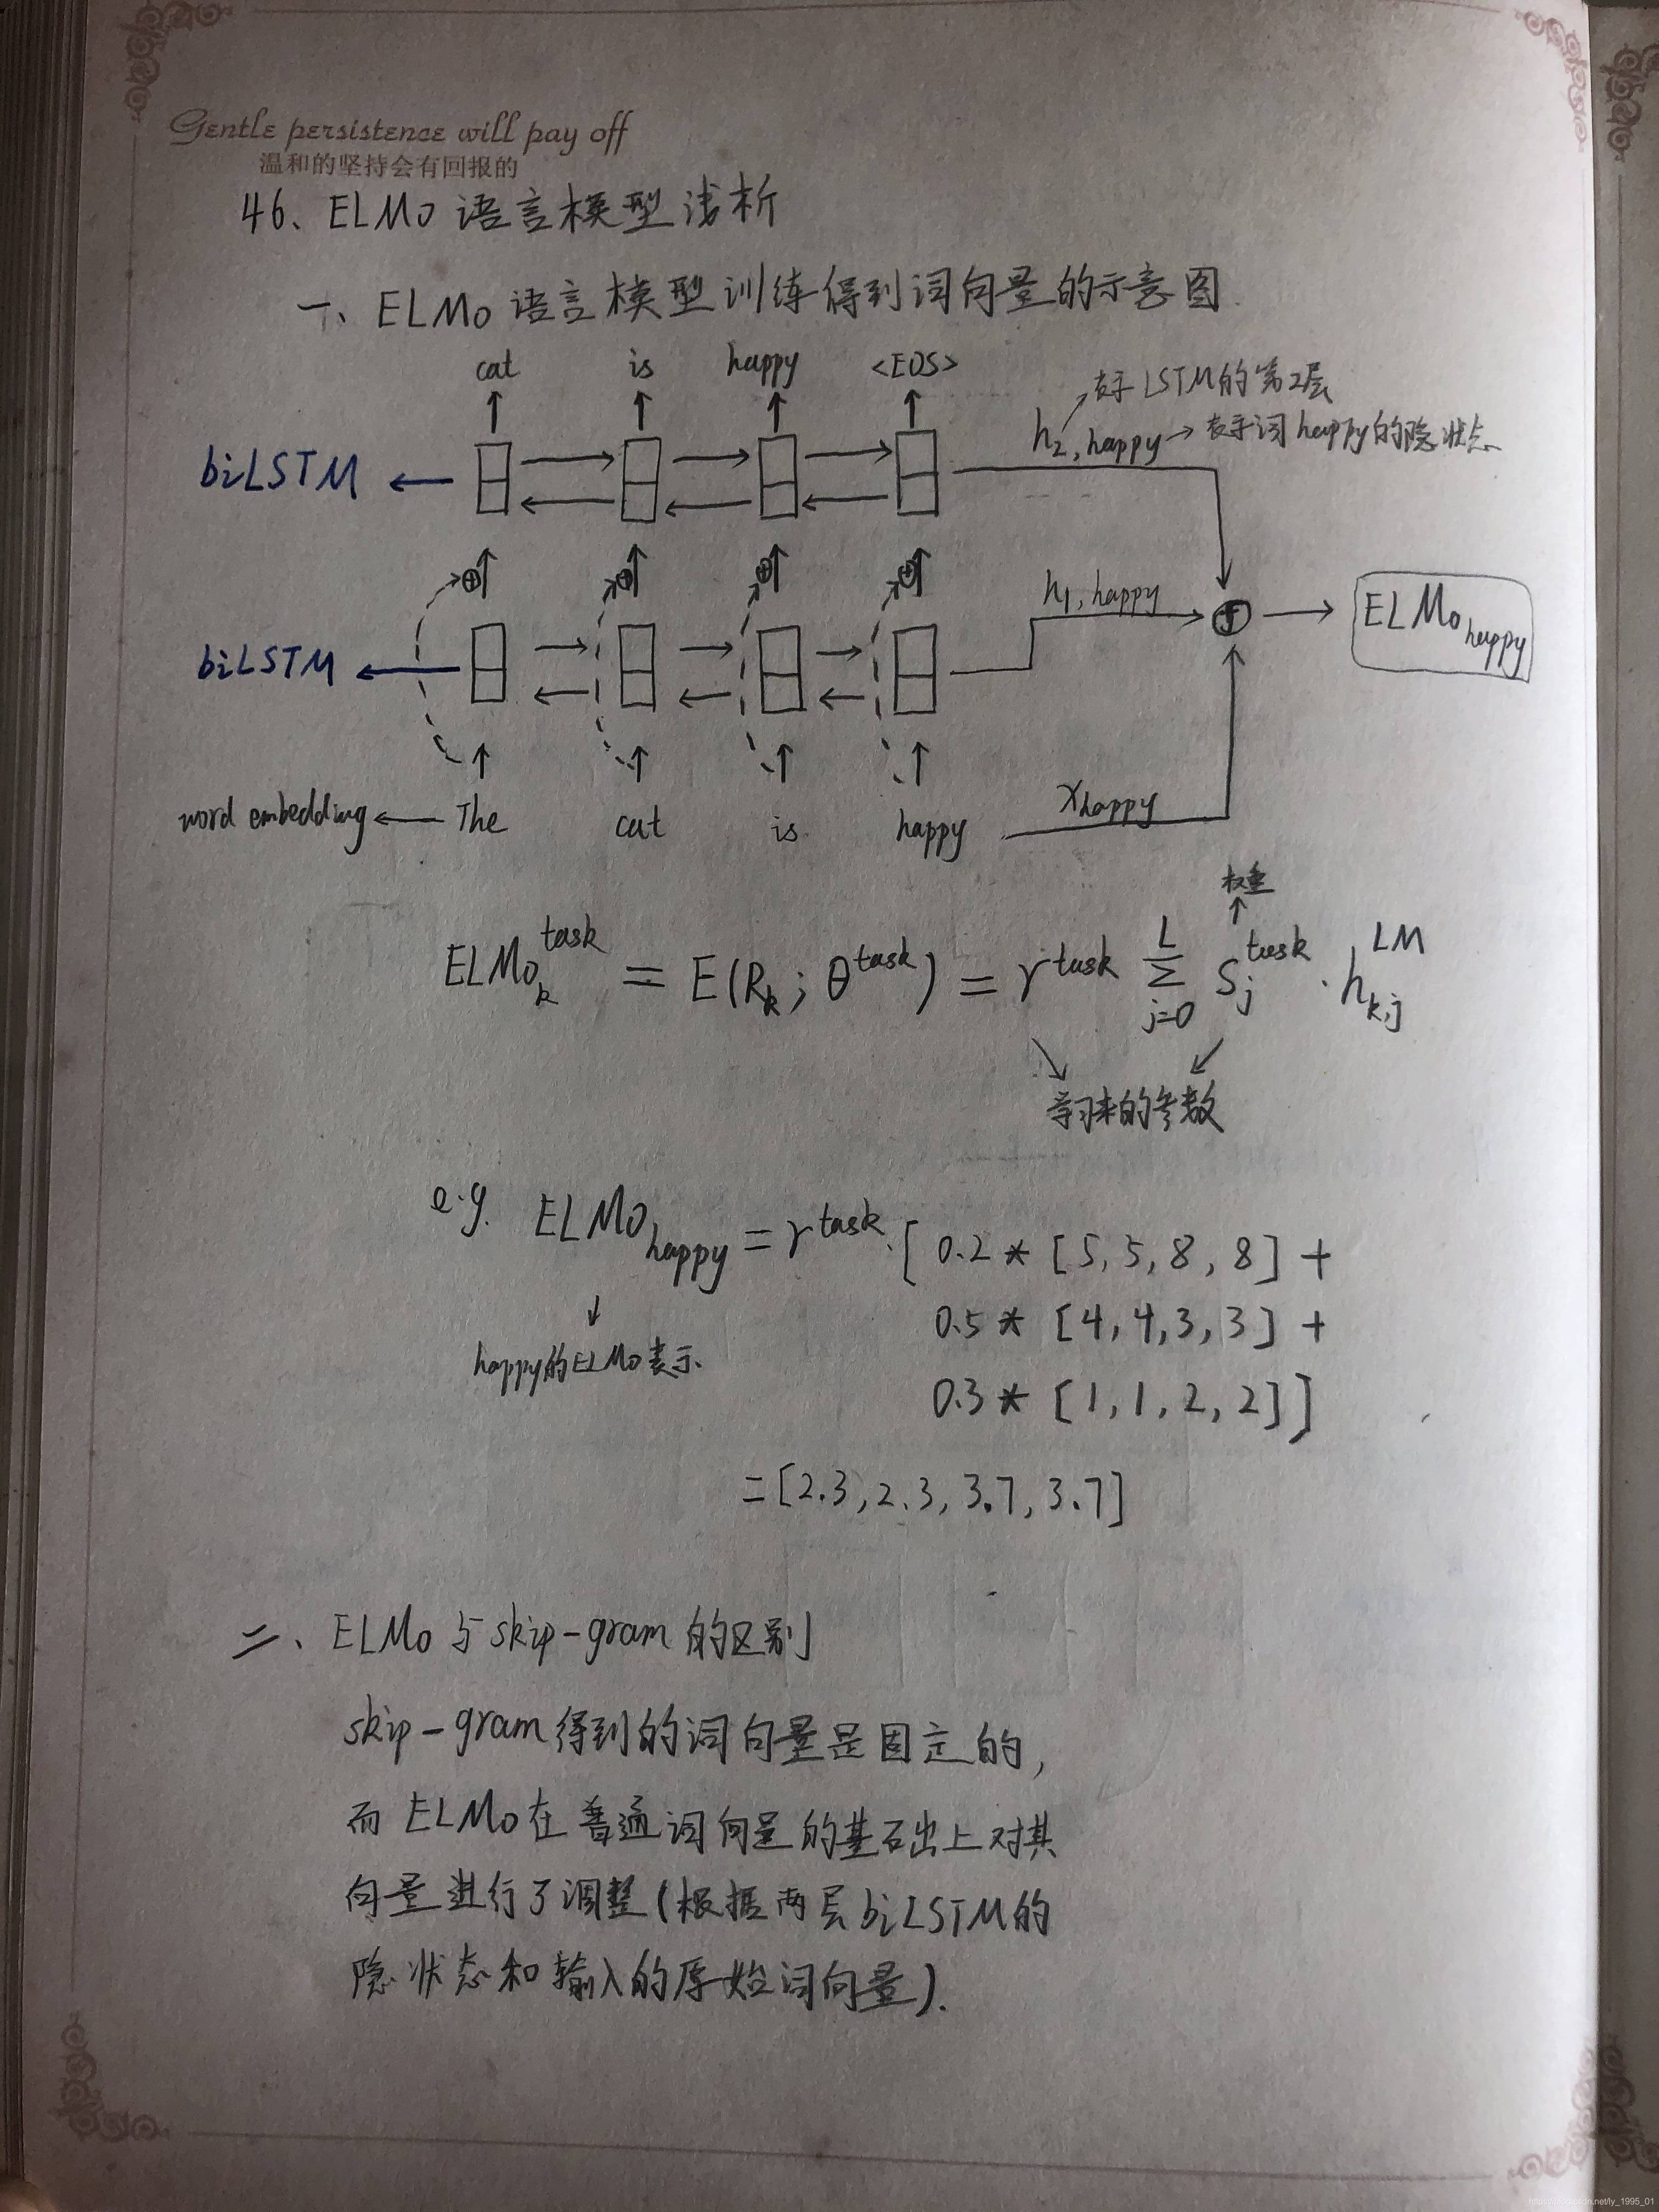 Gentle persistence will pay off
温和的坚持会有回报的
46、ELMo 语言模型浅析
一、ELMo 语言模型训练得到词向量的示意图
cat is happy <EOS>
表示LSTM的第2层
h2, happy → 表示词happy的隐状态
biLSTM ←
h1, happy
biLSTM ←
f
ELMo happy
word embedding ← The cat is happy
xhappy
权重
ELMo_k^task = E(R_k; θ^task) = r^task Σ_{j=0}^{L} S_j^task · h_{k,j}^{LM}
学习来的参数
e.g. ELMo_happy = r^task · [0.2 * [5, 5, 8, 8] +
0.5 * [4, 4, 3, 3] +
0.3 * [1, 1, 2, 2]]
happy的ELMo表示
= [2.3, 2.3, 3.7, 3.7]
二、ELMo 与 skip-gram 的区别
skip-gram得到的词向量是固定的,
而 ELMo在普通词向量的基础上对其
向量进行了调整(根据两层biLSTM的
隐状态和输入的原始词向量).